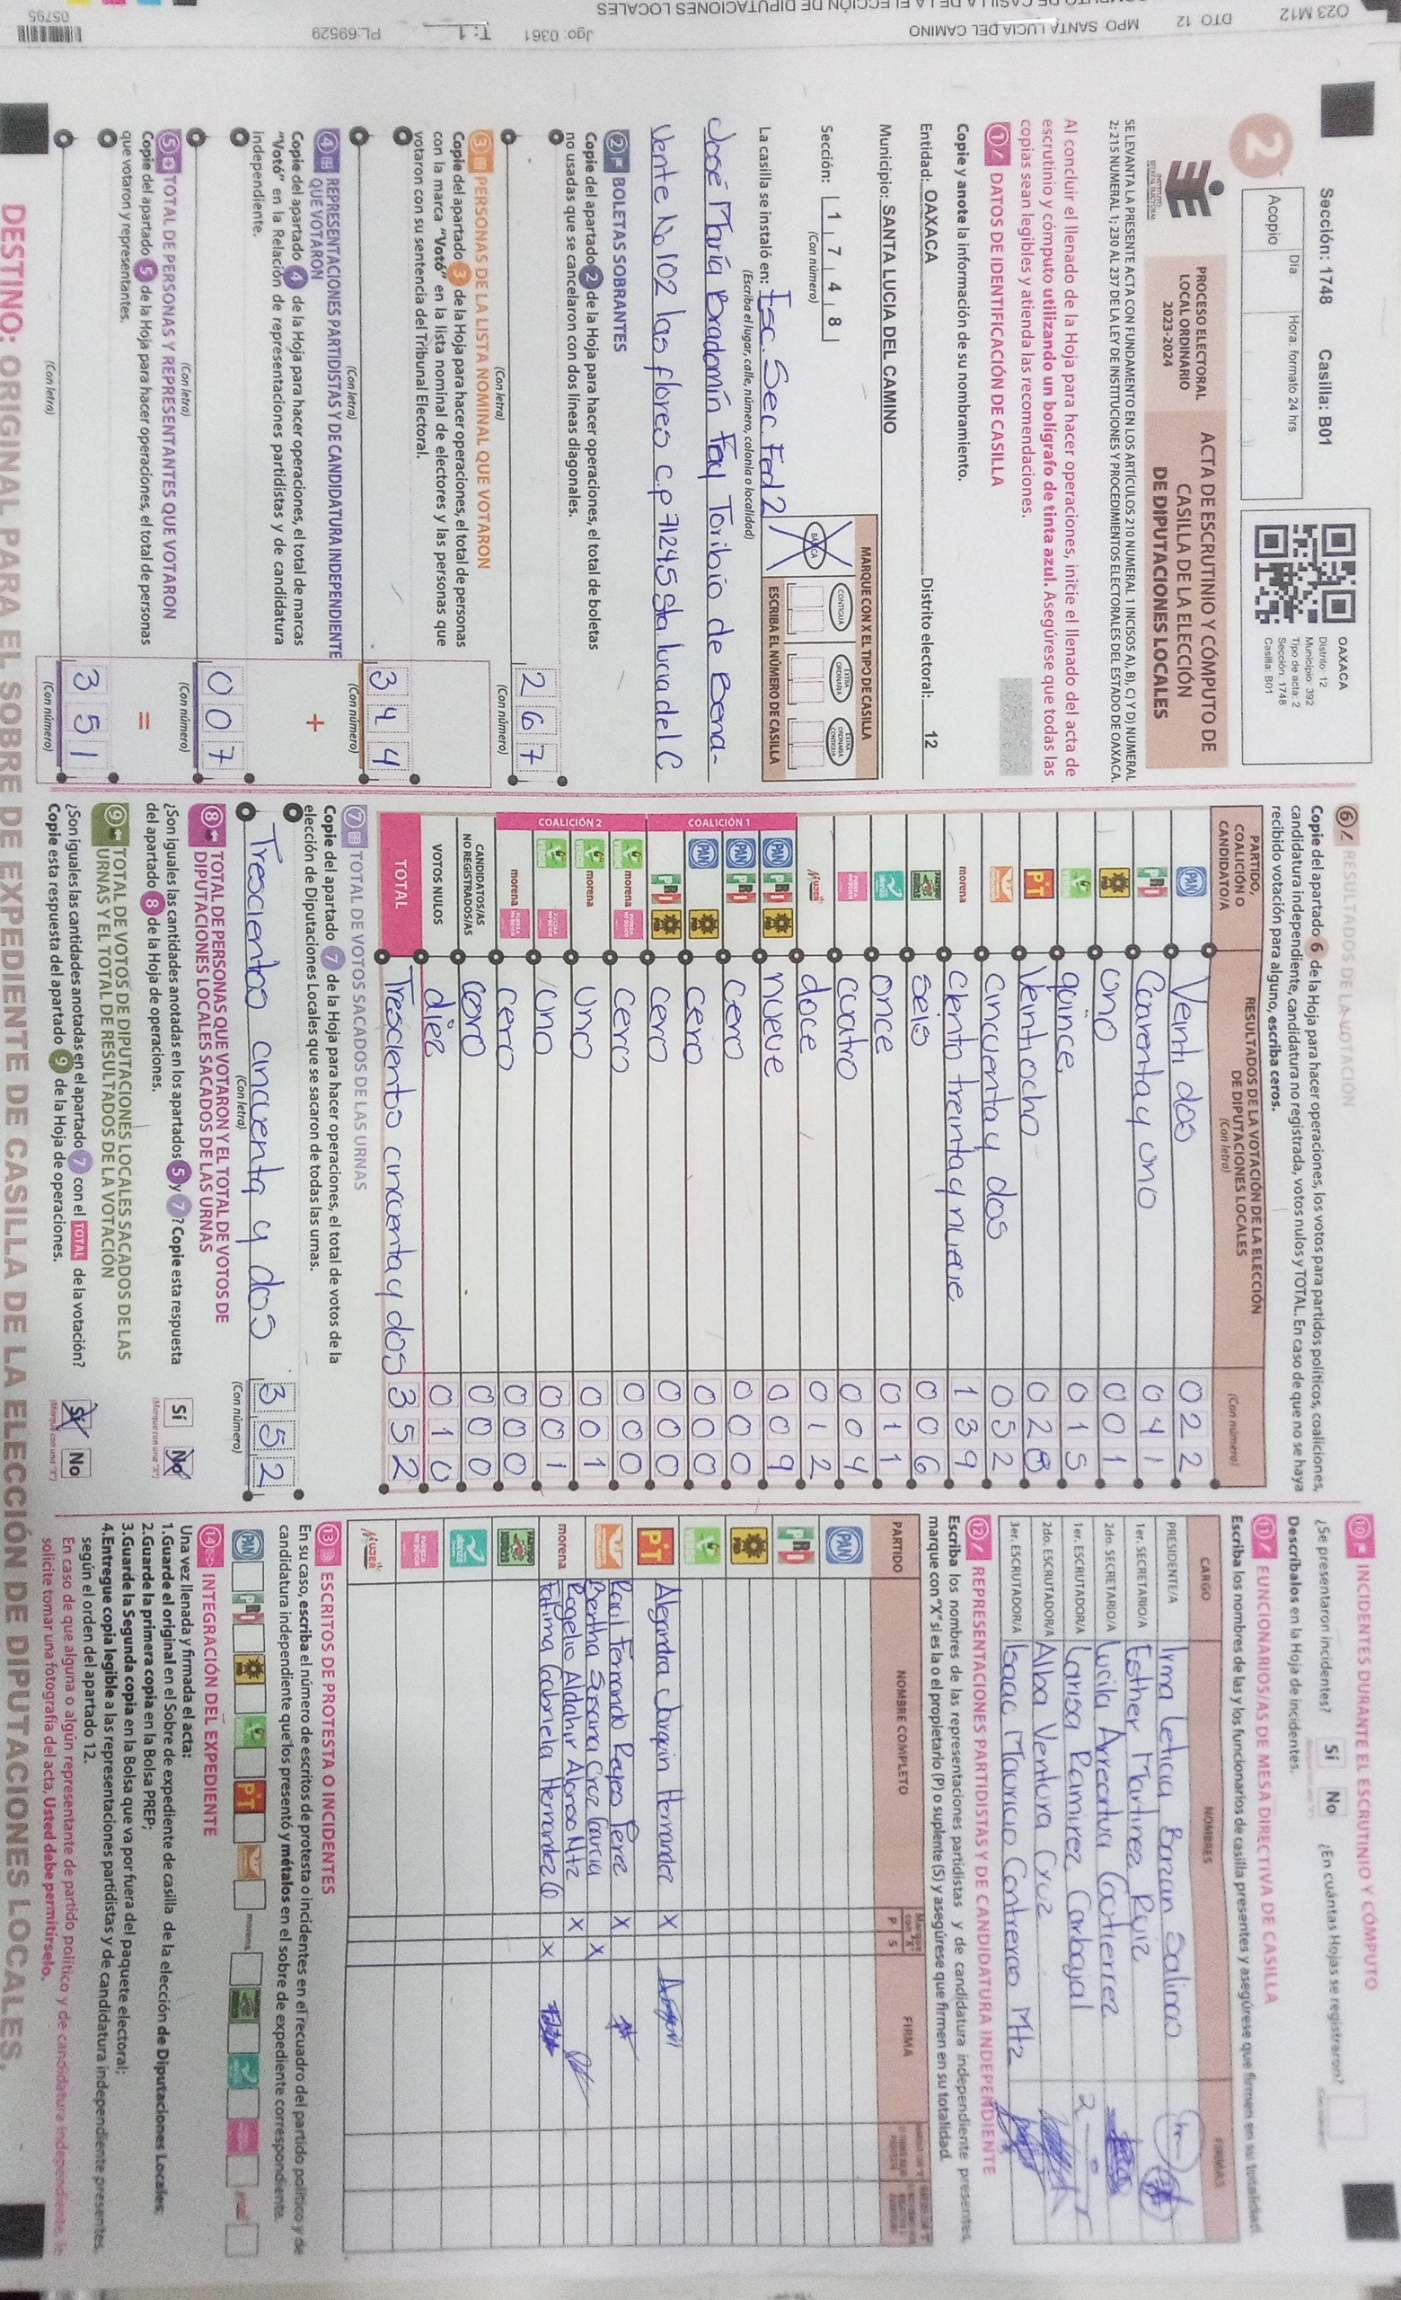 Sección: 1748 Casilla: B01
2
Día Hora: formato 24 hrs.
Acopio
OAXACA
Distrito: 12
Municipio: 392
Tipo de acta: 2
Sección: 1748
Casilla: B01
PROCESO ELECTORAL
LOCAL ORDINARIO
2023-2024
ACTA DE ESCRUTINIO Y CÓMPUTO DE
CASILLA DE LA ELECCIÓN
DE DIPUTACIONES LOCALES
SE LEVANTA LA PRESENTE ACTA CON FUNDAMENTO EN LOS ARTÍCULOS 210 NUMERAL 1 INCISOS A), B), C) Y D) NUMERAL
2; 215 NUMERAL 1; 230 AL 237 DE LA LEY DE INSTITUCIONES Y PROCEDIMIENTOS ELECTORALES DEL ESTADO DE OAXACA.
Al concluir el llenado de la Hoja para hacer operaciones, inicie el llenado del acta de
escrutinio y cómputo utilizando un bolígrafo de tinta azul. Asegúrese que todas las
copias sean legibles y atienda las recomendaciones.
1 DATOS DE IDENTIFICACIÓN DE CASILLA
Copie y anote la información de su nombramiento.
Entidad: OAXACA Distrito electoral: 12
Municipio: SANTA LUCIA DEL CAMINO
Sección: 1 7 4 8
(Con número)
MARQUE CON X EL TIPO DE CASILLA
BÁSICA CONTIGUA EXTRAORDINARIA EXTRAORDINARIA CONTIGUA
ESCRIBA EL NÚMERO DE CASILLA
La casilla se instaló en: Esc. Sec Fed 2
(Escriba el lugar, calle, número, colonia o localidad)
José María Bradomín Fray Toribio de Bena-
vente No 102 las flores C.P 71245 Sta lucia del C
2 BOLETAS SOBRANTES
Copie del apartado 2 de la Hoja para hacer operaciones, el total de boletas
no usadas que se cancelaron con dos líneas diagonales.
2 6 7
(Con letra) (Con número)
3 PERSONAS DE LA LISTA NOMINAL QUE VOTARON
Copie del apartado 3 de la Hoja para hacer operaciones, el total de personas
con la marca "Votó" en la lista nominal de electores y las personas que
votaron con su sentencia del Tribunal Electoral.
3 4 4
(Con letra) (Con número)
4 REPRESENTACIONES PARTIDISTAS Y DE CANDIDATURA INDEPENDIENTE
QUE VOTARON
+
Copie del apartado 4 de la Hoja para hacer operaciones, el total de marcas
"Votó" en la Relación de representaciones partidistas y de candidatura
independiente.
0 0 7
(Con letra) (Con número)
5 TOTAL DE PERSONAS Y REPRESENTANTES QUE VOTARON
=
Copie del apartado 5 de la Hoja para hacer operaciones, el total de personas
que votaron y representantes.
3 5 1
(Con letra) (Con número)
6 RESULTADOS DE LA VOTACIÓN
Copie del apartado 6 de la Hoja para hacer operaciones, los votos para partidos políticos, coaliciones,
candidatura independiente, candidatura no registrada, votos nulos y TOTAL. En caso de que no se haya
recibido votación para alguno, escriba ceros.
PARTIDO,
COALICIÓN O
CANDIDATO/A
RESULTADOS DE LA VOTACIÓN DE LA ELECCIÓN
DE DIPUTACIONES LOCALES
(Con letra)
(Con número)
PAN Veinti dos 022
PRI Cuarenta y uno 041
PRD uno 001
VERDE quince 015
PT Veintiocho 028
cincuenta y dos 052
morena ciento treinta y nueve 139
seis 006
once 011
cuatro 004
MUJER doce 012
COALICIÓN 1
PAN PRI PRD nueve 009
PAN PRI cero 000
PAN PRD cero 000
PRI PRD cero 000
COALICIÓN 2
VERDE morena cero 000
VERDE morena uno 001
VERDE uno 001
morena cero 000
CANDIDATOS/AS
NO REGISTRADOS/AS cero 000
VOTOS NULOS diez 010
TOTAL Trescientos cincuenta y dos 352
7 TOTAL DE VOTOS SACADOS DE LAS URNAS
Copie del apartado 7 de la Hoja para hacer operaciones, el total de votos de la
elección de Diputaciones Locales que se sacaron de todas las urnas.
Trescientos cincuenta y dos 3 5 2
(Con letra) (Con número)
8 TOTAL DE PERSONAS QUE VOTARON Y EL TOTAL DE VOTOS DE
DIPUTACIONES LOCALES SACADOS DE LAS URNAS
¿Son iguales las cantidades anotadas en los apartados 5 y 7? Copie esta respuesta
del apartado 8 de la Hoja de operaciones.
Sí No
9 TOTAL DE VOTOS DE DIPUTACIONES LOCALES SACADOS DE LAS
URNAS Y EL TOTAL DE RESULTADOS DE LA VOTACIÓN
¿Son iguales las cantidades anotadas en el apartado 7 con el TOTAL de la votación?
Copie esta respuesta del apartado 9 de la Hoja de operaciones.
Sí No
10 INCIDENTES DURANTE EL ESCRUTINIO Y CÓMPUTO
¿Se presentaron incidentes? Sí No ¿En cuántas Hojas se registraron?
Descríbalos en la Hoja de incidentes.
11 FUNCIONARIOS/AS DE MESA DIRECTIVA DE CASILLA
Escriba los nombres de las y los funcionarios de casilla presentes y asegúrese que firmen en su totalidad.
CARGO NOMBRES FIRMAS
PRESIDENTE/A Irma Leticia Bazan Salinas
1er. SECRETARIO/A Esther Martinez Ruiz
2do. SECRETARIO/A Lucila Arreortua Gutierrez
1er. ESCRUTADOR/A Larisa Ramirez Carbajal
2do. ESCRUTADOR/A Alba Ventura Cruz
3er. ESCRUTADOR/A Isaac Mauricio Contreras Mtz
12 REPRESENTACIONES PARTIDISTAS Y DE CANDIDATURA INDEPENDIENTE
Escriba los nombres de las representaciones partidistas y de candidatura independiente presentes,
marque con "X" si es la o el propietario (P) o suplente (S) y asegúrese que firmen en su totalidad.
PARTIDO NOMBRE COMPLETO Marque con "X" P S FIRMA
PAN
PRI
PRD
VERDE
PT Alejandra Jarquin Hernandez X
Raul Fernando Reyes Perez X
Bertha Susana Cruz Garcia X
morena Rogelio Aldahir Alonso Mtz X
Fatima Gabriela Hernandez G X
MUJER
13 ESCRITOS DE PROTESTA O INCIDENTES
En su caso, escriba el número de escritos de protesta o incidentes en el recuadro del partido político y de
candidatura independiente que los presentó y métalos en el sobre de expediente correspondiente.
PAN PRI PRD VERDE PT morena
14 INTEGRACIÓN DEL EXPEDIENTE
Una vez llenada y firmada el acta:
1.Guarde el original en el Sobre de expediente de casilla de la elección de Diputaciones Locales;
2.Guarde la primera copia en la Bolsa PREP;
3.Guarde la Segunda copia en la Bolsa que va por fuera del paquete electoral;
4.Entregue copia legible a las representaciones partidistas y de candidatura independiente presentes,
según el orden del apartado 12.
En caso de que alguna o algún representante de partido político y de candidatura independiente, le
solicite tomar una fotografía del acta, Usted debe permitírselo.
DESTINO: ORIGINAL PARA EL SOBRE DE EXPEDIENTE DE CASILLA DE LA ELECCIÓN DE DIPUTACIONES LOCALES.
O23 M12 DTO 12 MPO SANTA LUCIA DEL CAMINO
CASILLA DE LA ELECCIÓN DE DIPUTACIONES LOCALES
Jgo: 0361 T: 1 PL:69529
05795